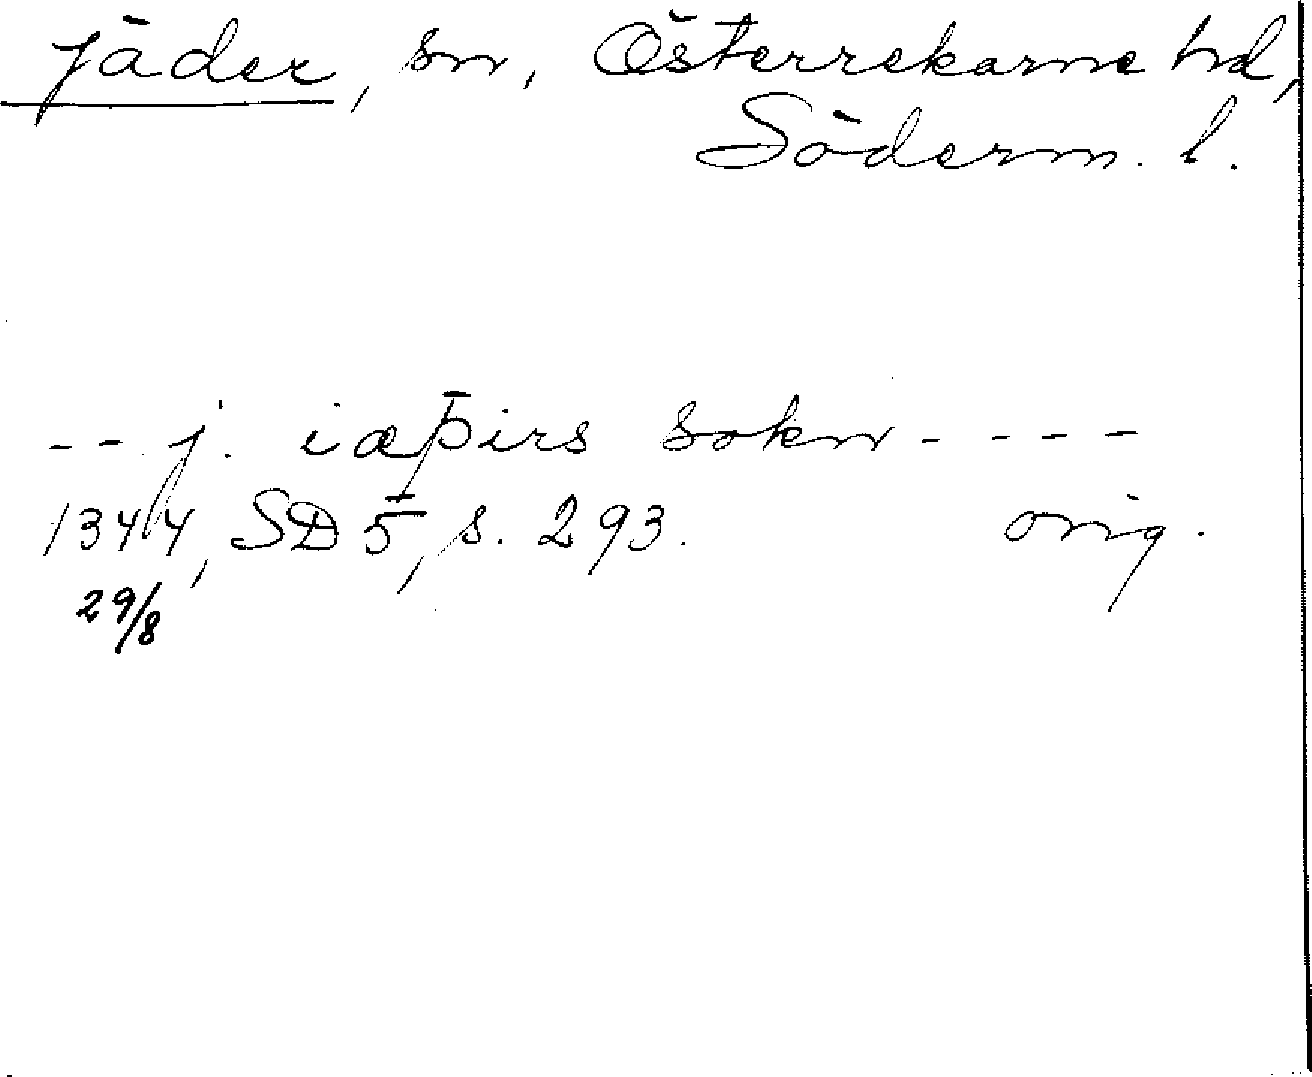 Jäder, sn, Österrekarne hd,
Söderm. l.
-- j. iæþirs sokn - - - -
1344, SD 5, s. 293. orig.
29/8